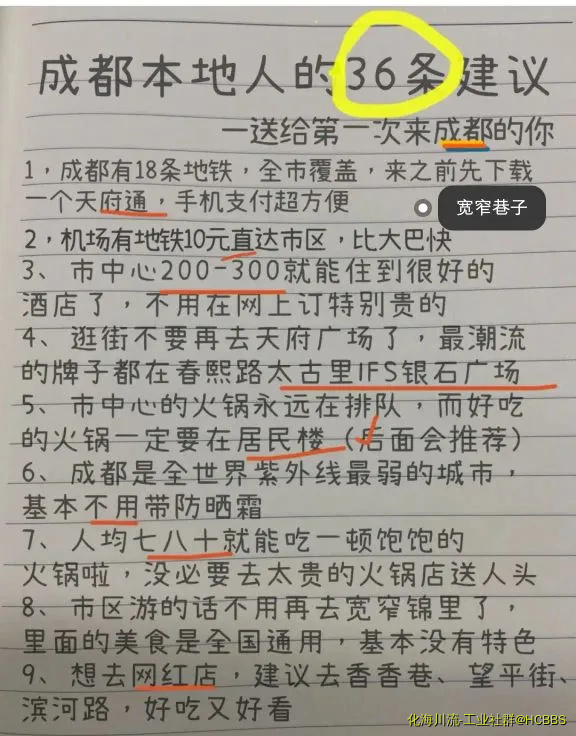 成都本地人的36条建议
一送给第一次来成都的你
1，成都有18条地铁，全市覆盖，来之前先下载
一个天府通，手机支付超方便
宽窄巷子
2，机场有地铁10元直达市区，比大巴快
3、市中心200-300就能住到很好的
酒店了，不用在网上订特别贵的
4、逛街不要再去天府广场了，最潮流
的牌子都在春熙路太古里IFS银石广场
5、市中心的火锅永远在排队，而好吃
的火锅一定要在居民楼（后面会推荐）
6、成都是全世界紫外线最弱的城市，
基本不用带防晒霜
7、人均七八十就能吃一顿饱饱的
火锅啦，没必要去太贵的火锅店送人头
8、市区游的话不用再去宽窄锦里了，
里面的美食是全国通用，基本没有特色
9、想去网红店，建议去香香巷、望平街、
滨河路，好吃又好看
化海川流-工业社群@HCBBS